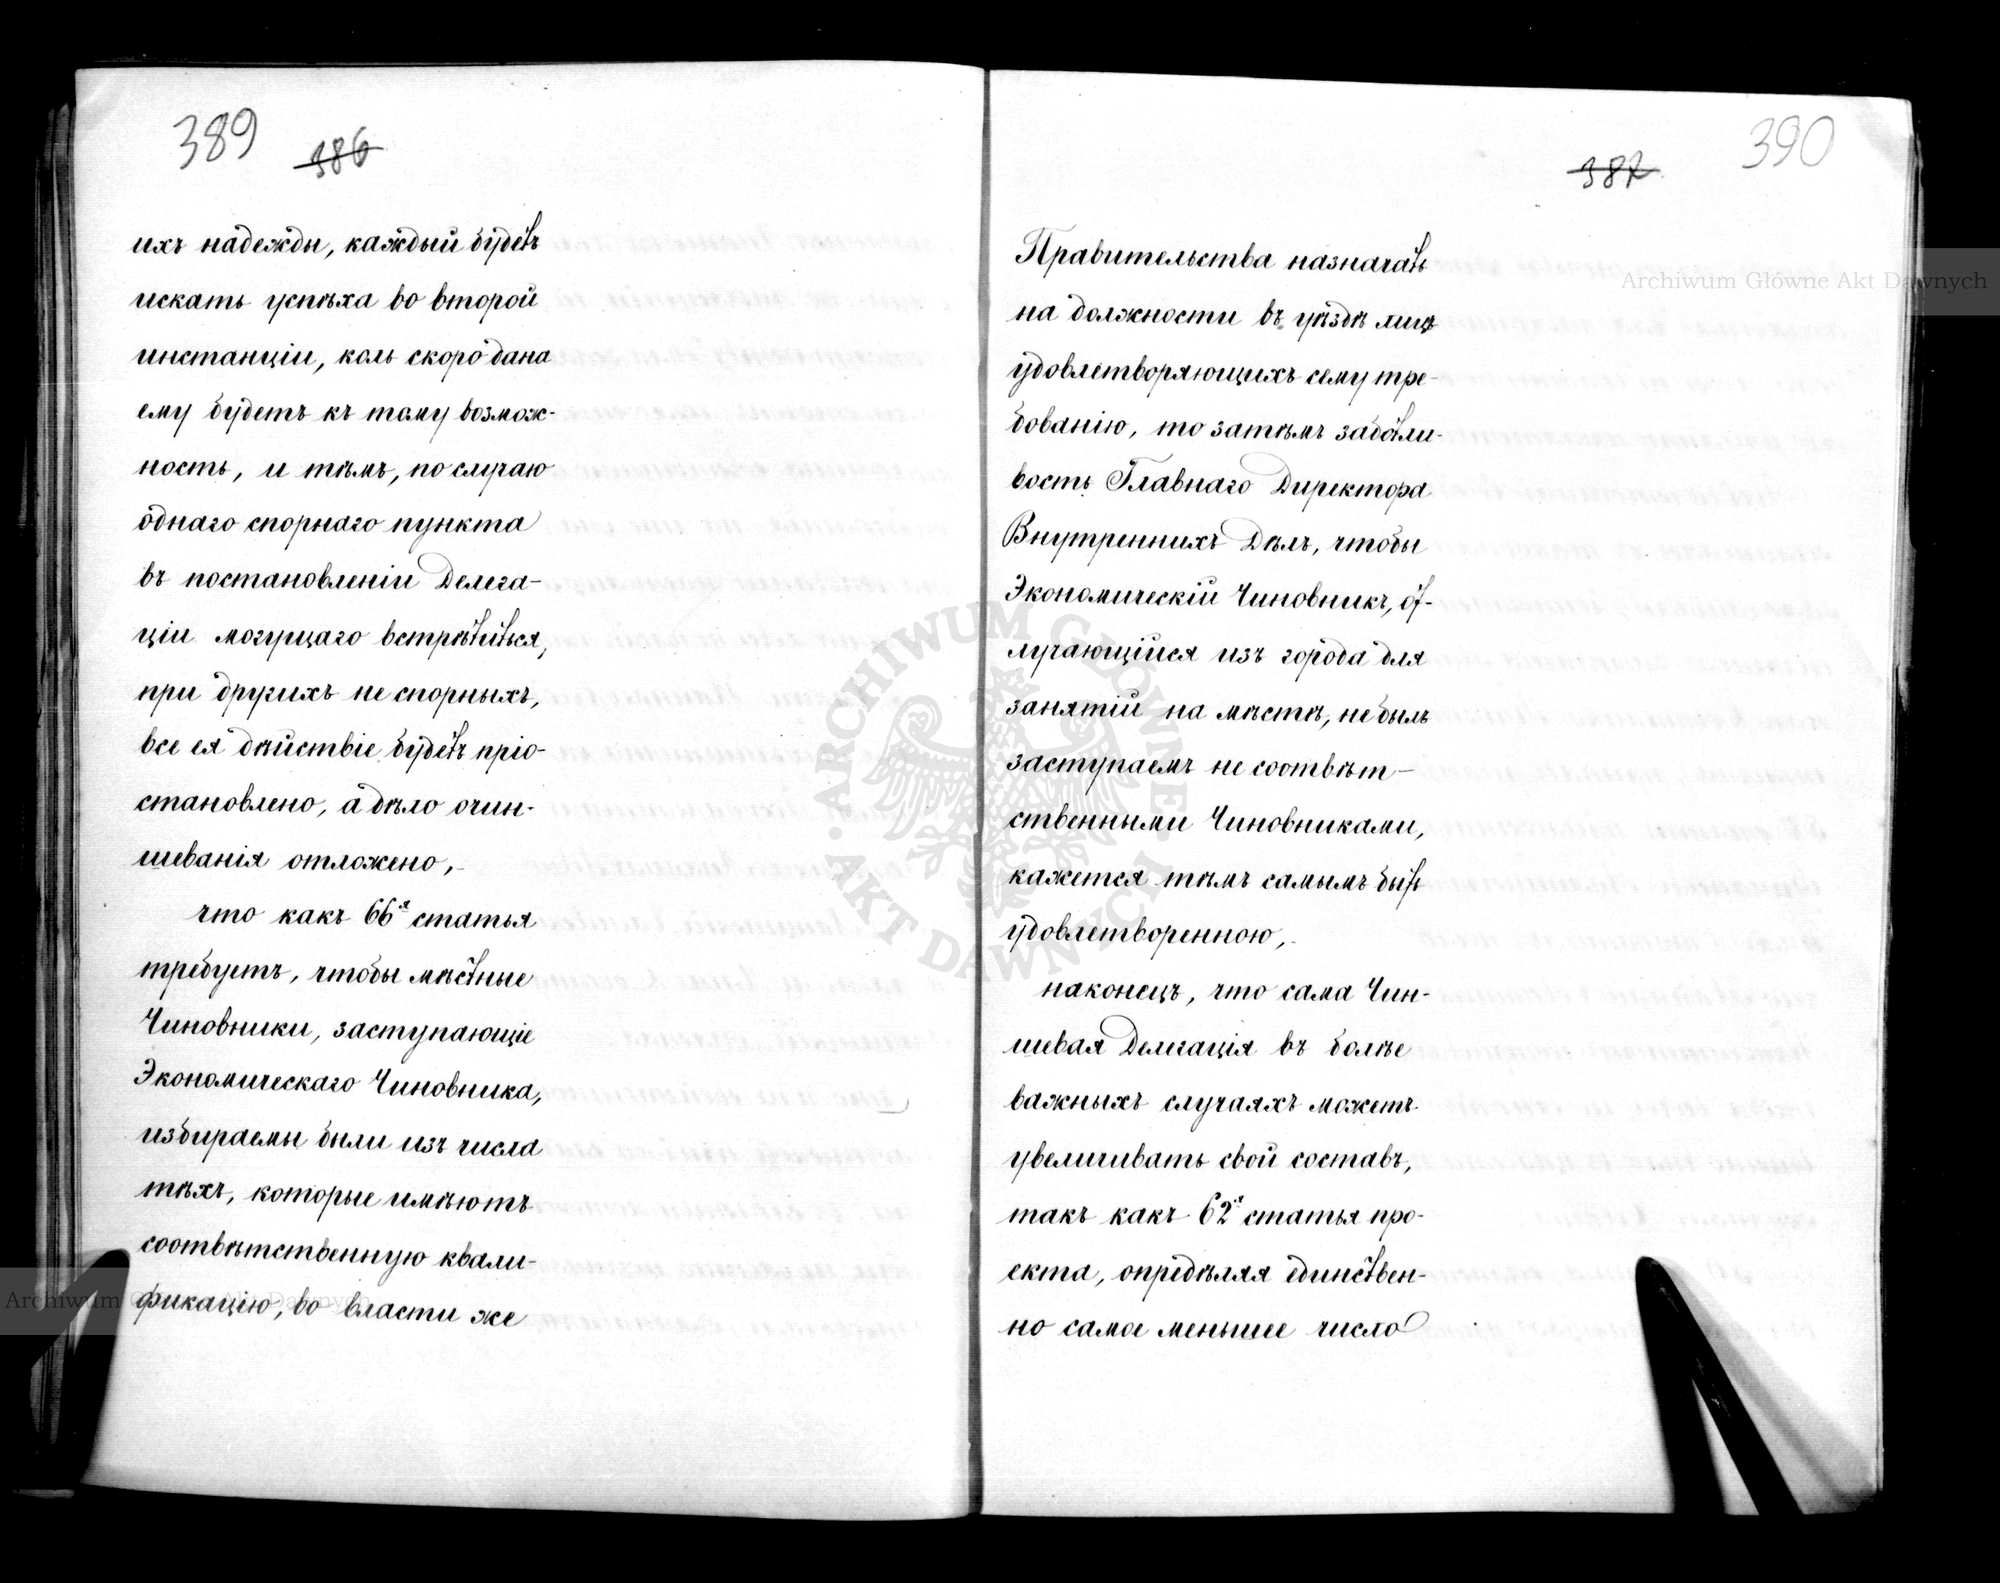 389 386
ихъ надежды, каждый будетъ
искать успѣха во второй
инстанціи, коль скоро дана
ему будетъ къ тому возмож-
ность, и тѣмъ, по случаю
однаго спорнаго пункта
въ постановленіи Делега-
ціи могущаго встрѣтиться,
при другихъ не спорныхъ,
все ея дѣйствіе будетъ пріо-
становлено, а дѣло очин-
шеванія отложено,
что какъ 66я статья
требуетъ, чтобы мѣстные
Чиновники, заступающіе
Экономическаго Чиновника,
избираемы были изъ числа
тѣхъ, которые имѣютъ
соотвѣтственную квали-
фикацію, во власти же
387 390
Правительства назначать
на должности въ уѣздѣ лицъ
удовлетворяющихъ сему тре-
бованію, то затѣмъ заботли-
вость Главнаго Директора
Внутреннихъ Дѣлъ, чтобы
Экономическій Чиновникъ, от-
лучающійся изъ города для
занятій на мѣстѣ, не былъ
заступаемъ не соотвѣт-
ственными Чиновниками,
кажется тѣмъ самымъ быть
удовлетворенною,
наконецъ, что сама Чин-
шевая Делегація въ болѣе
важныхъ случаяхъ можетъ
увеличивать свой составъ,
такъ какъ 62я статья про-
екта, опредѣляя единствен-
но самое меньшее число
Archiwum Główne Akt Dawnych
Archiwum Główne Akt Dawnych
ARCHIWUM GŁÓWNE AKT DAWNYCH